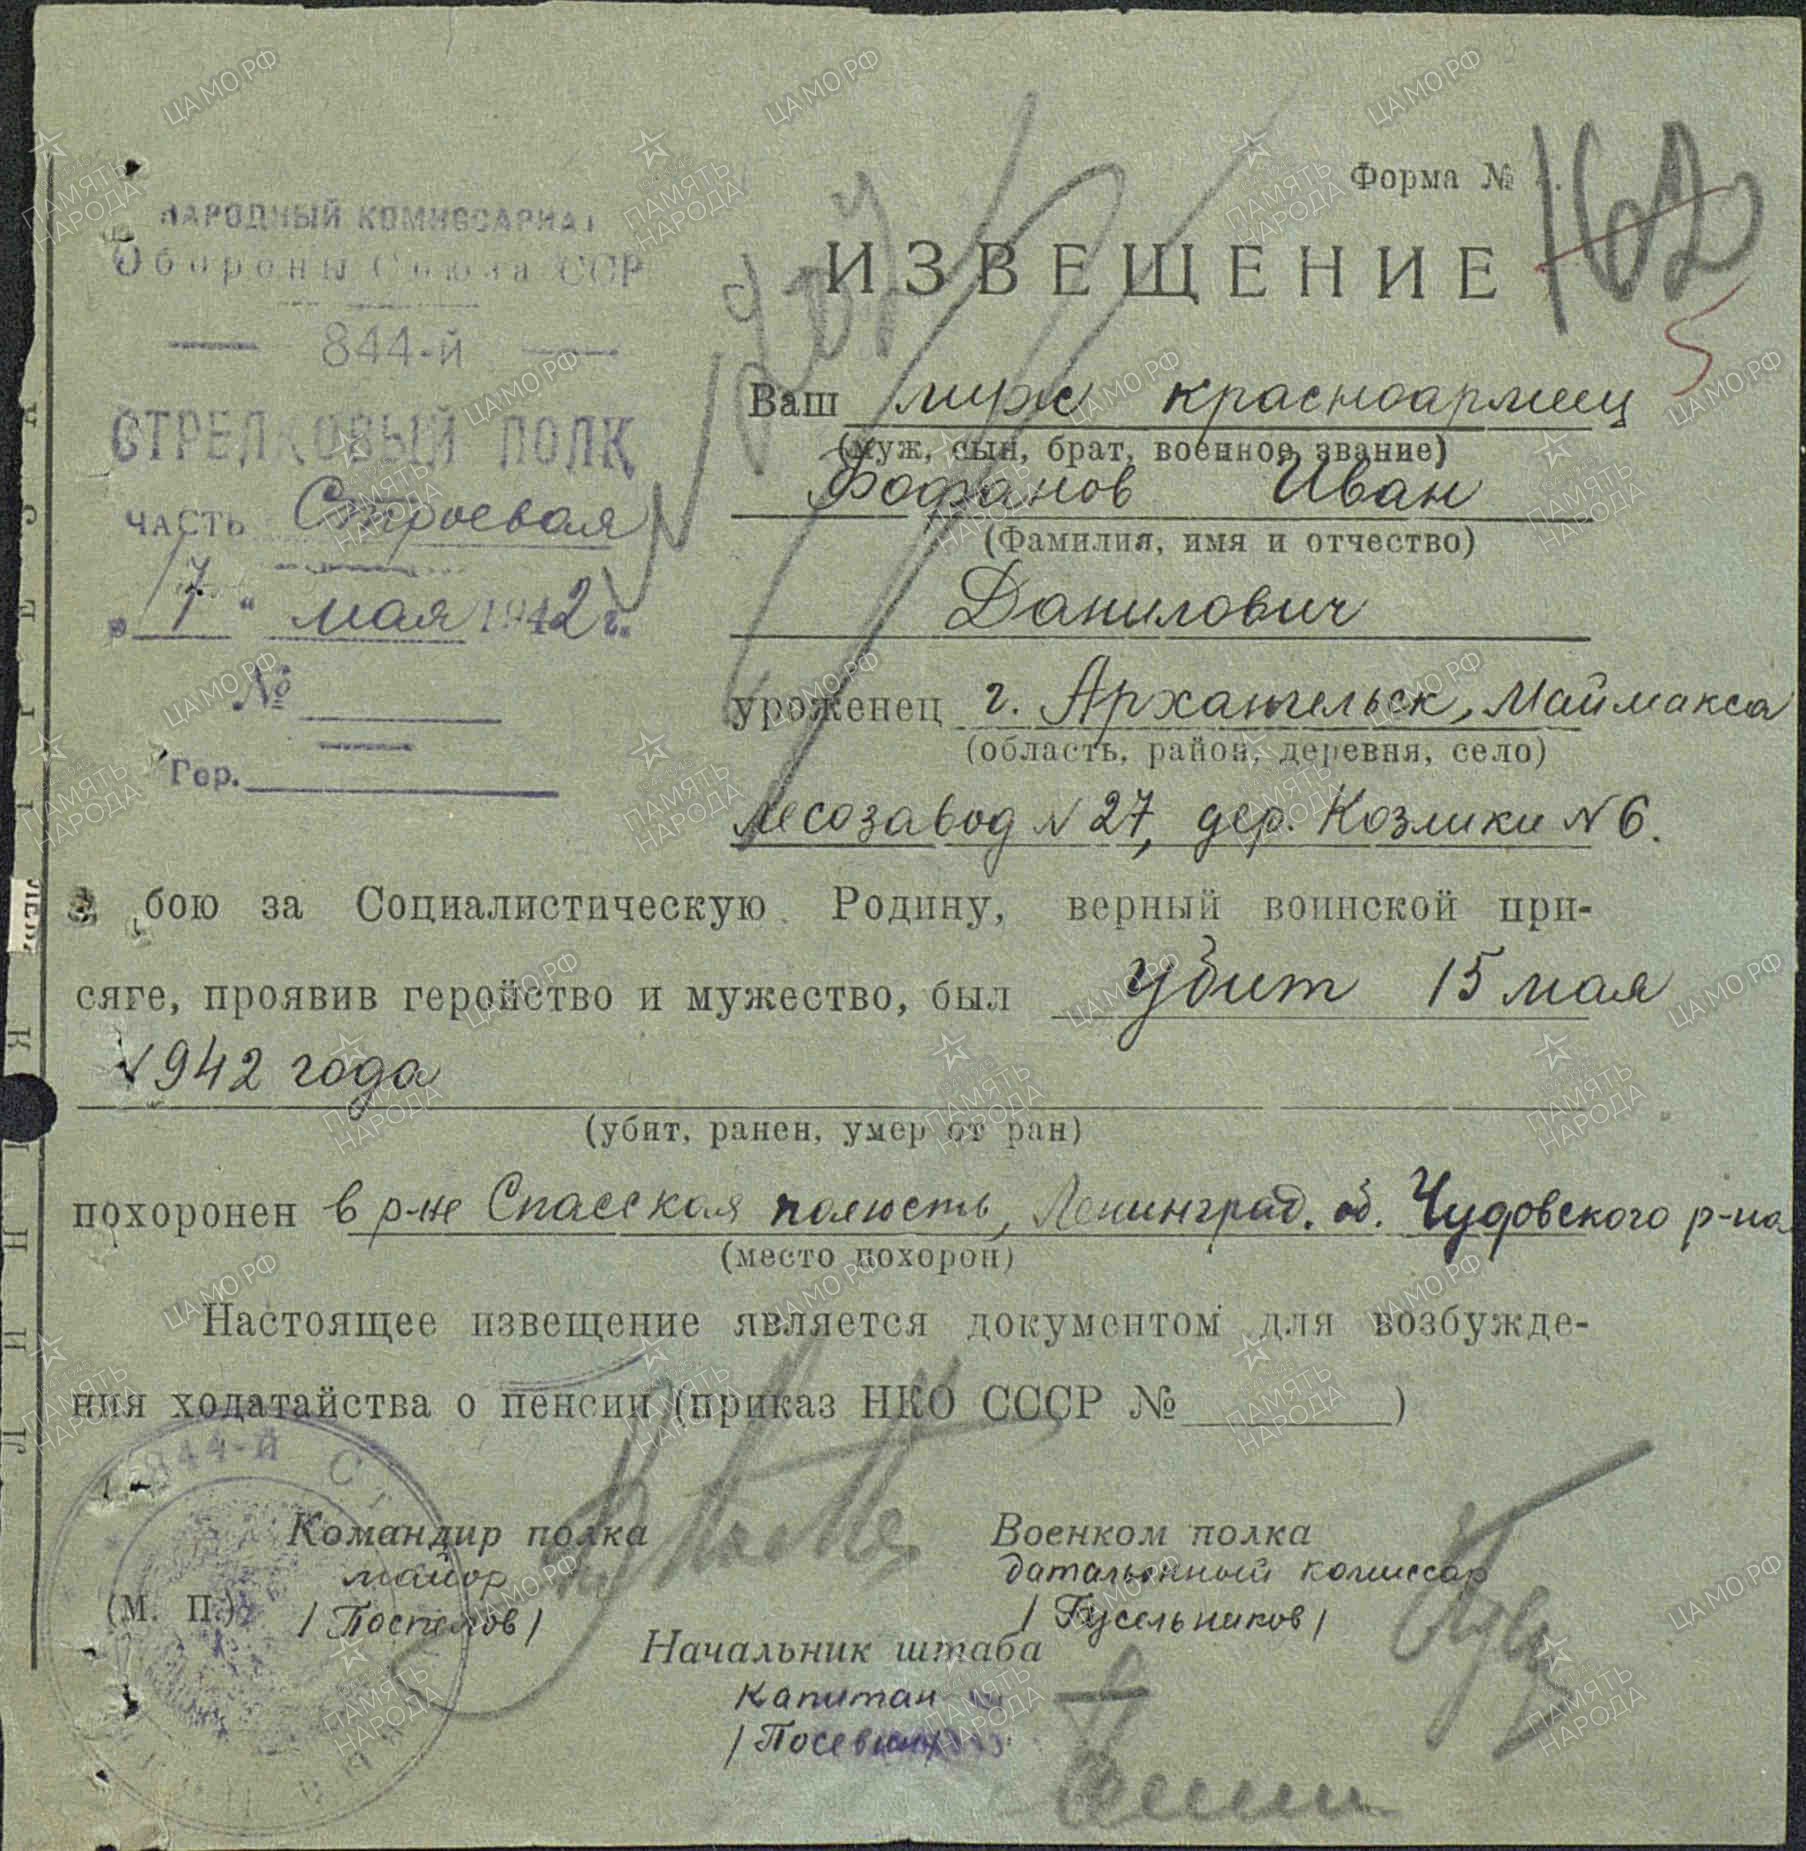 Форма №
162
5
НАРОДНЫЙ КОМИССАРИАТ
Обороны Союза ССР
844-й
СТРЕЛКОВЫЙ ПОЛК
часть Строевая
„17" мая 1942 г.
№
Гор.
ИЗВЕЩЕНИЕ
Ваш муж красноармеец
(муж, сын, брат, военное звание)
Фофанов Иван
(Фамилия, имя и отчество)
Данилович
уроженец г. Архангельск, Маймакса
(область, район, деревня, село)
Лесозавод N 27, дер. Козлики N 6.
в бою за Социалистическую Родину, верный воинской при-
сяге, проявив геройство и мужество, был убит 15 мая
1942 года
(убит, ранен, умер от ран)
похоронен в р-не Спасская полисть, Ленинград. об. Чудовского р-на
(место похорон)
Настоящее извещение является документом для возбужде-
ния ходатайства о пенсии (приказ НКО СССР № )
844-й С
Командир полка
майор
/Поспелов/
(М. П.)
Военком полка
батальонный комиссар
/Гусельников/
Начальник штаба
капитан
ЦАМО.РФ
ПАМЯТЬ НАРОДА